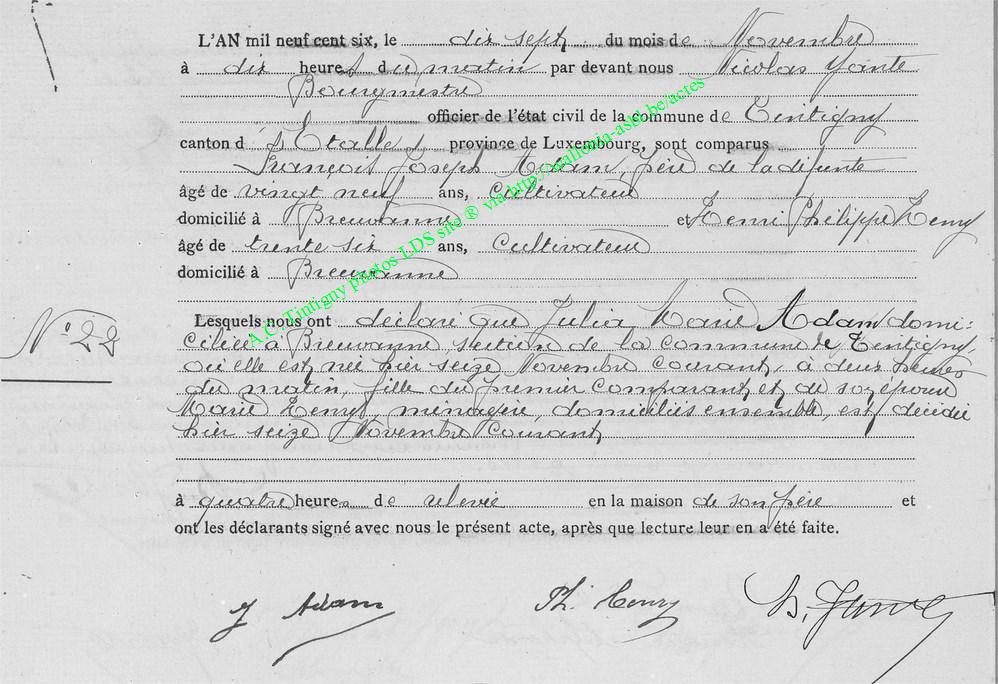 L'AN mil neuf cent six, le dix sept du mois de Novembre
à dix heures du matin par devant nous Nicolas Yante
Bourgmestre
officier de l'état civil de la commune de Tintigny
canton d'Etalle province de Luxembourg, sont comparus
François Joseph Adam, père de la défunte
âgé de vingt neuf ans, Cultivateur
domicilié à Breuvanne et Henri Philippe Henry
âgé de trente six ans, Cultivateur
domicilié à Breuvanne
N° 22
Lesquels nous ont déclaré que Julia Marie Adam domi-
ciliée à Breuvanne, section de la commune de Tintigny,
où elle est née hier seize Novembre courant, à deux heures
du matin, fille du premier comparant et de son épouse
Marie Henry, ménagère, domiciliés ensemble, est décédée
hier seize Novembre courant,
à quatre heures de relevée en la maison de son père et
ont les déclarants signé avec nous le présent acte, après que lecture leur en a été faite.
J Adam Ph. Henry
A.C. Tintigny photos LDS site ® via http://wallonia-asbl.be/actes